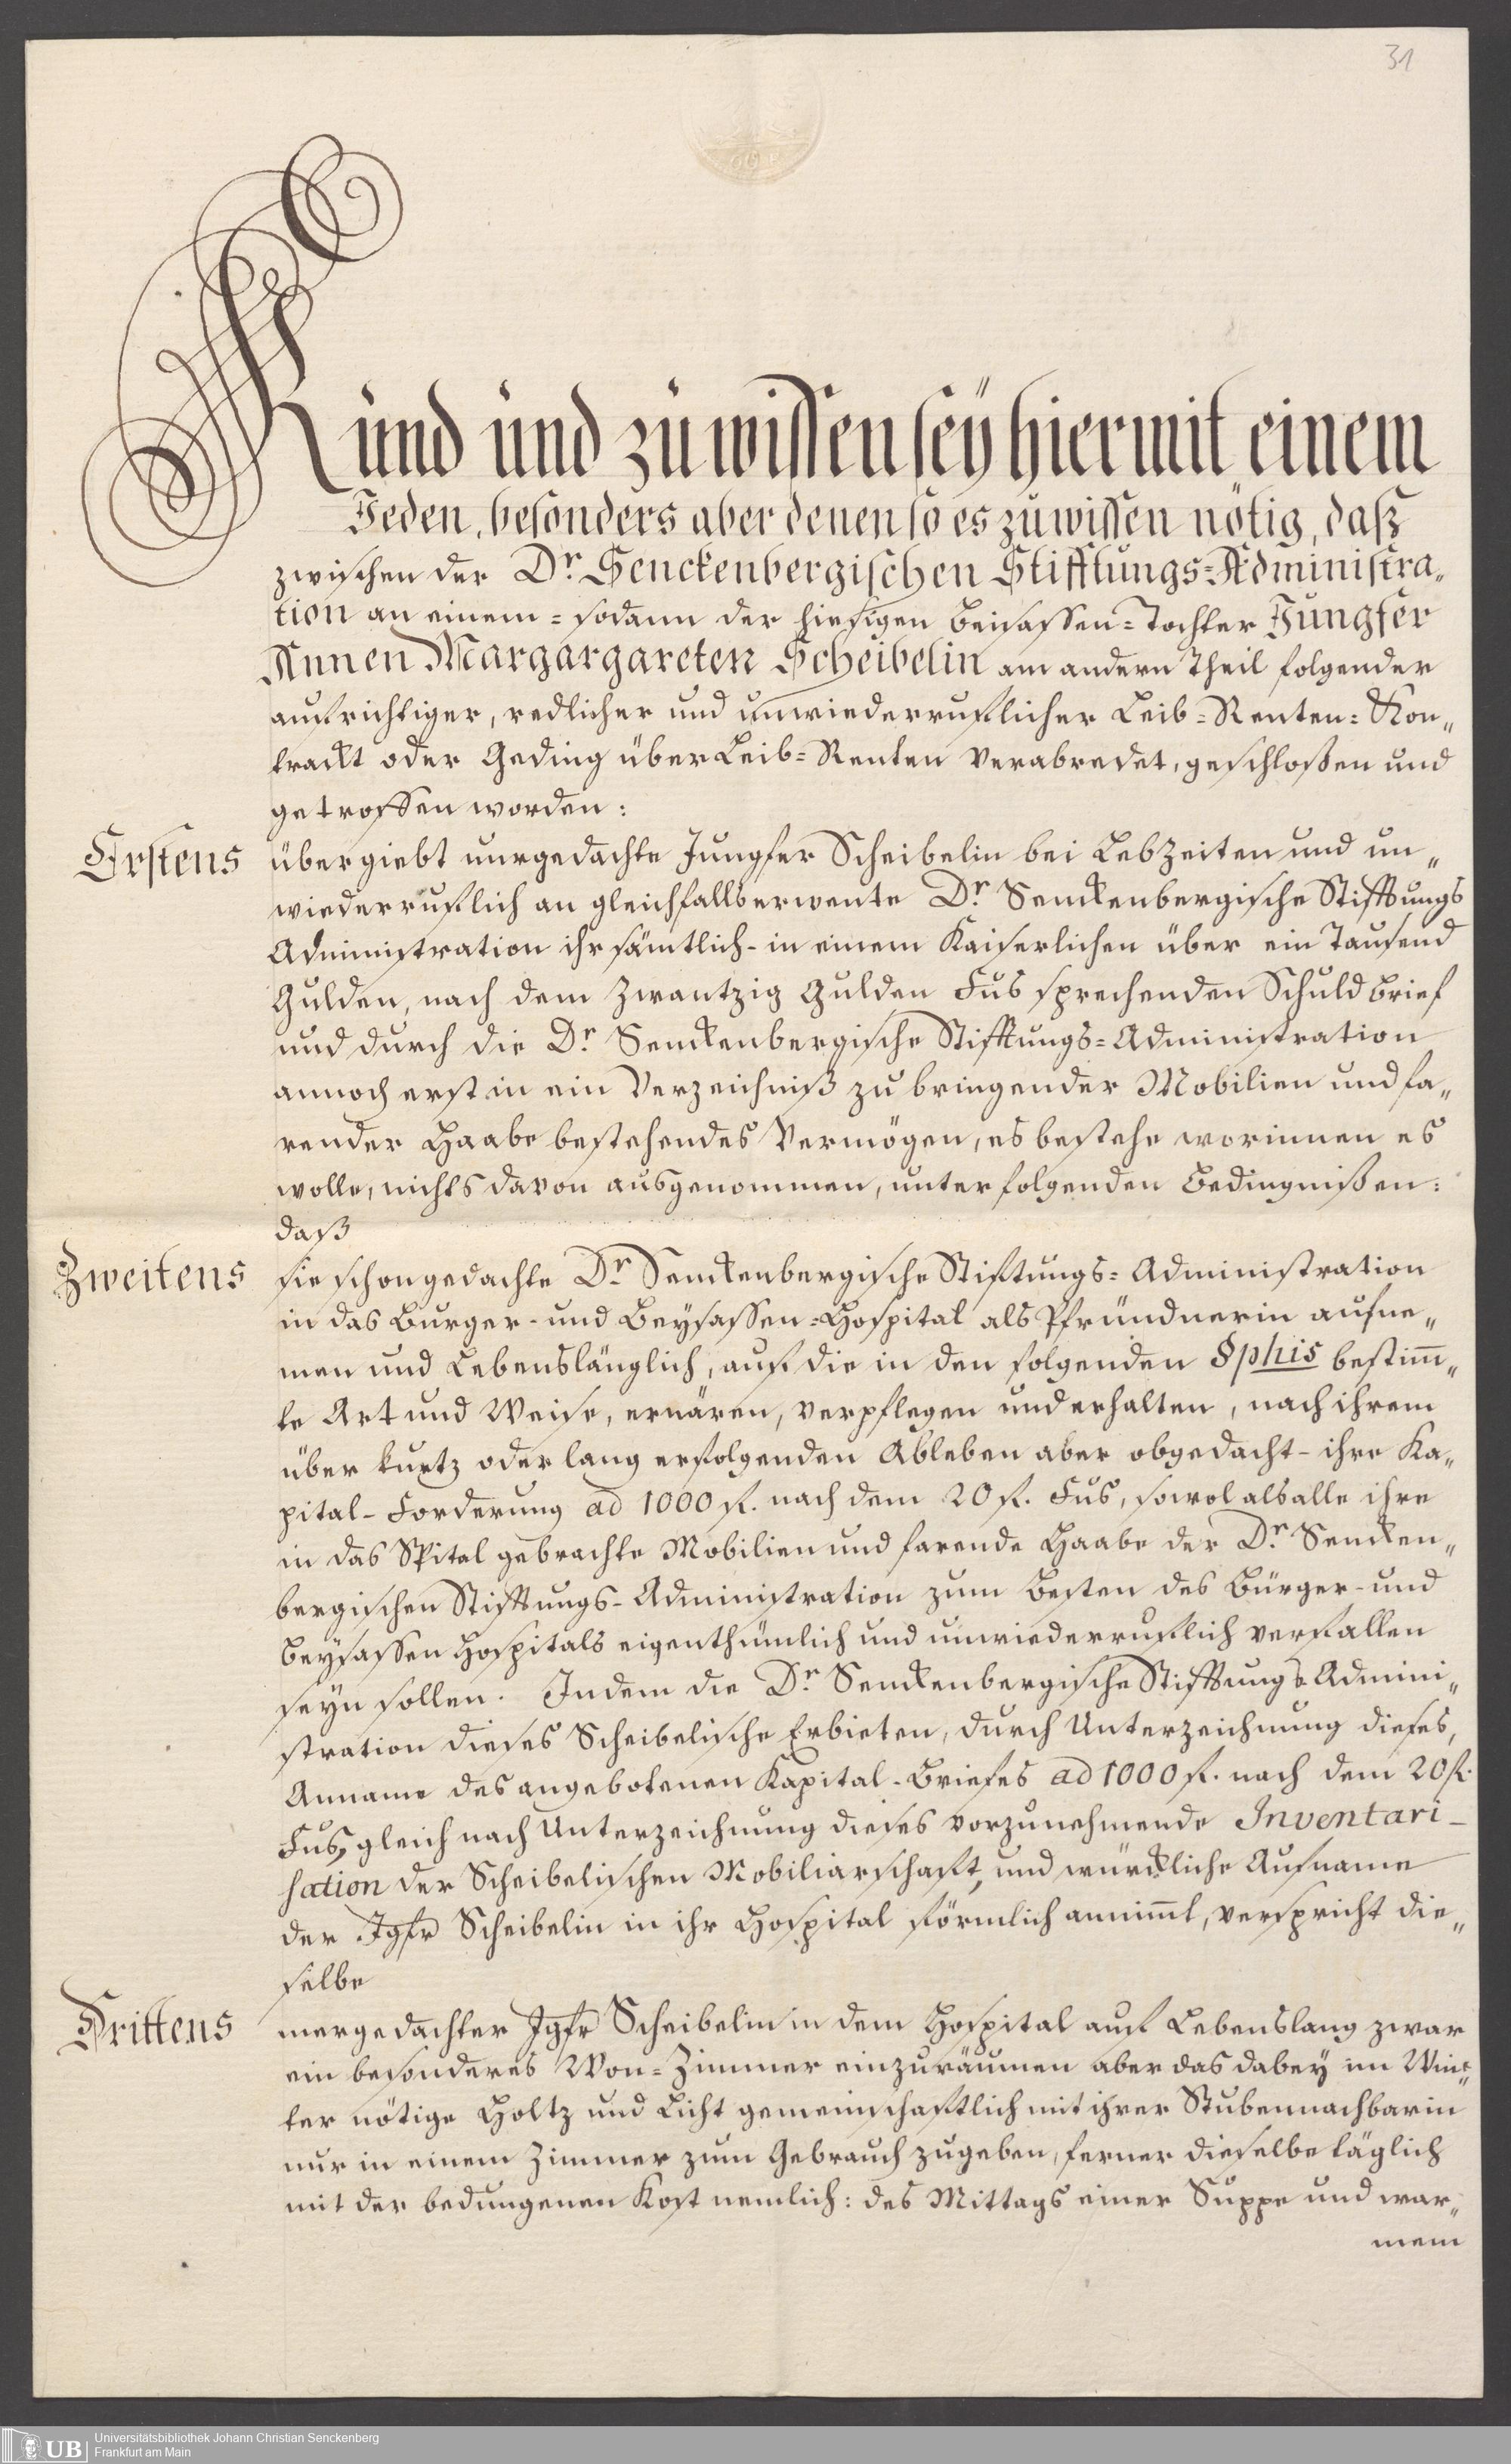 31
Kund und zu wissen sey hiermit einem
Jeden, besonders aber denen so es zu wissen nötig, daß
zwischen der Dr. Senckenbergischen Stifftungs-Administra„
tion an einem = sodann der hiesigen Beisassen-Tochter Jungfer
Annen Margargareten Scheibelin am andern Theil folgender
aufrichtiger, redlicher und unwiederruflicher Leib-Renten-Kon„
trackt oder Geding über Leib-Renten verabredet, geschloßen und
getroffen worden:
Erstens übergiebt nurgedachte Jungfer Scheibelin bei Lebzeiten und un„
wiederruflich an gleichfalls erwente Dr. Senckenbergische Stifftungs
Administration ihr sämtlich- in einem Kaiserlichen über ein Tausend
Gulden, nach dem Zwantzig Gulden Fus sprechenden Schuld Brief
und durch die Dr. Senckenbergische Stifftungs-Administration
annoch erst in ein Verzeichniß zu bringender Mobilien und fa„
render Haabe bestehendes Vermögen, es bestehe worinnen es
wolle, nichts davon ausgenommen, unter folgenden Bedingnißen:
daß
Zweitens sie schongedachte Dr. Senckenbergische Stiftungs-Administration
in das Burger- und Beysassen-Hospital als Pfründnerin aufne„
men und Lebenslänglich, auf die in den folgenden §phis bestim̄„
te Art und Weise, ernären, verpflegen und erhalten, nach ihrem
über kurtz oder lang erfolgenden Ableben aber obgedacht- ihre Ka„
pital-Forderung ad 1000 fl. nach dem 20 fl. Fus, sowol als alle ihre
in das Spital gebrachte Mobilien und farende Haabe der Dr. Sencken„
bergischen Stifftungs-Administration zum Besten des Bürger- und
Beysassen Hospitals eigenthümlich und unwiederruflich verfallen
seyn sollen. Indem die Dr. Senckenbergische Stifftungs Admini„
stration dieses Scheibelische Erbieten, durch Unterzeichnung dieses,
Anname des angebotenen Kapital-Briefes ad 1000 fl. nach dem 20 fl.
Fus, gleich nach Unterzeichnung dieses vorzunehmende Inventari-
sation der Scheibelischen Mobiliarschaft, und würckliche Aufname
der Jgfr Scheibelin in ihr Hospital förmlich annim̄t, verspricht die„
selbe
Drittens mergedachter Jgfr Scheibelin in dem Hospital auf Lebenslang zwar
ein besonderes Won-Zimmer einzuräumen aber das dabey im Win„
ter nötige Holtz und Licht gemeinschaftlich mit ihrer Stubennachbarin
nur in einem Zimmer zum Gebrauch zugeben, ferner dieselbe täglich
mit der bedungenen Kost nemlich: des Mittags einer Suppe und war„
mem
UB Universitätsbibliothek Johann Christian Senckenberg
Frankfurt am Main